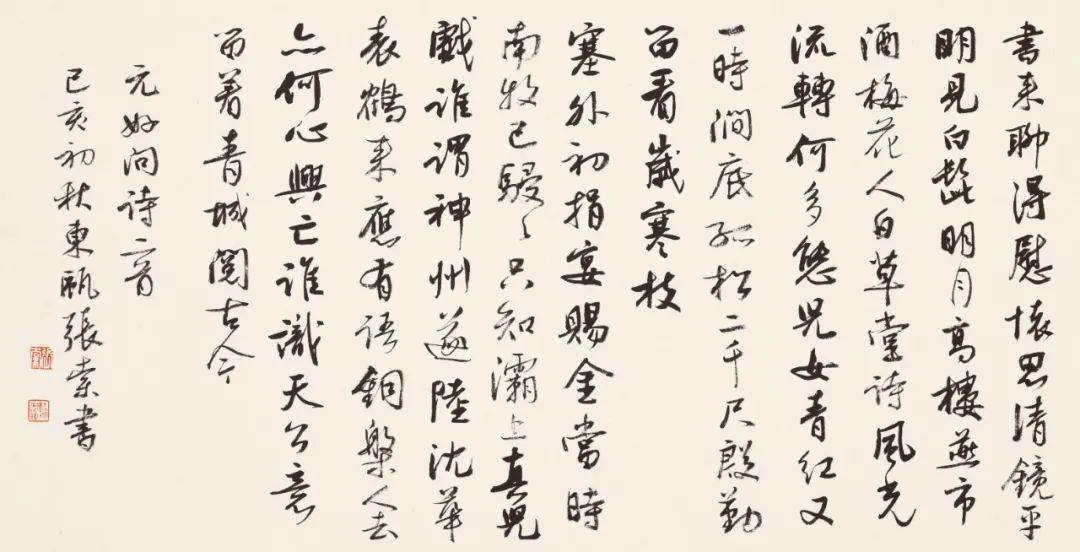 書来聊得慰懷思清鏡平
明見白髭明月高樓燕市
酒梅花人日草堂詩風光
流轉何多態兒女青紅又
一時澗底孤松二千尺殷勤
留看歲寒枝
塞外初捐宴賜金當時
南牧已駸々只知灞上真兒
戲誰謂神州遂陸沈華
表鶴来應有語銅槃人去
亦何心興亡誰識天公意
留着青城閱古今
元好问诗二首
己亥初秋東甌張索書